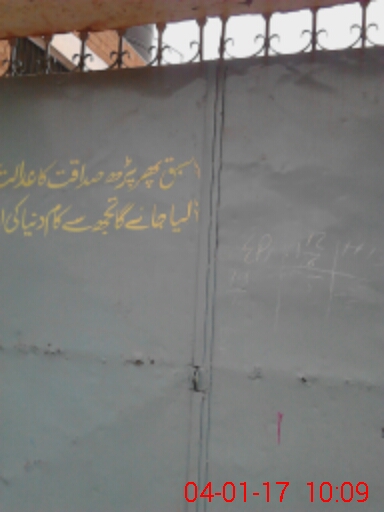 سبق پھر پڑھ صداقت کا عدالت
لیا جائے گا تجھ سے کام دنیا کی ا
04-01-17 10:09